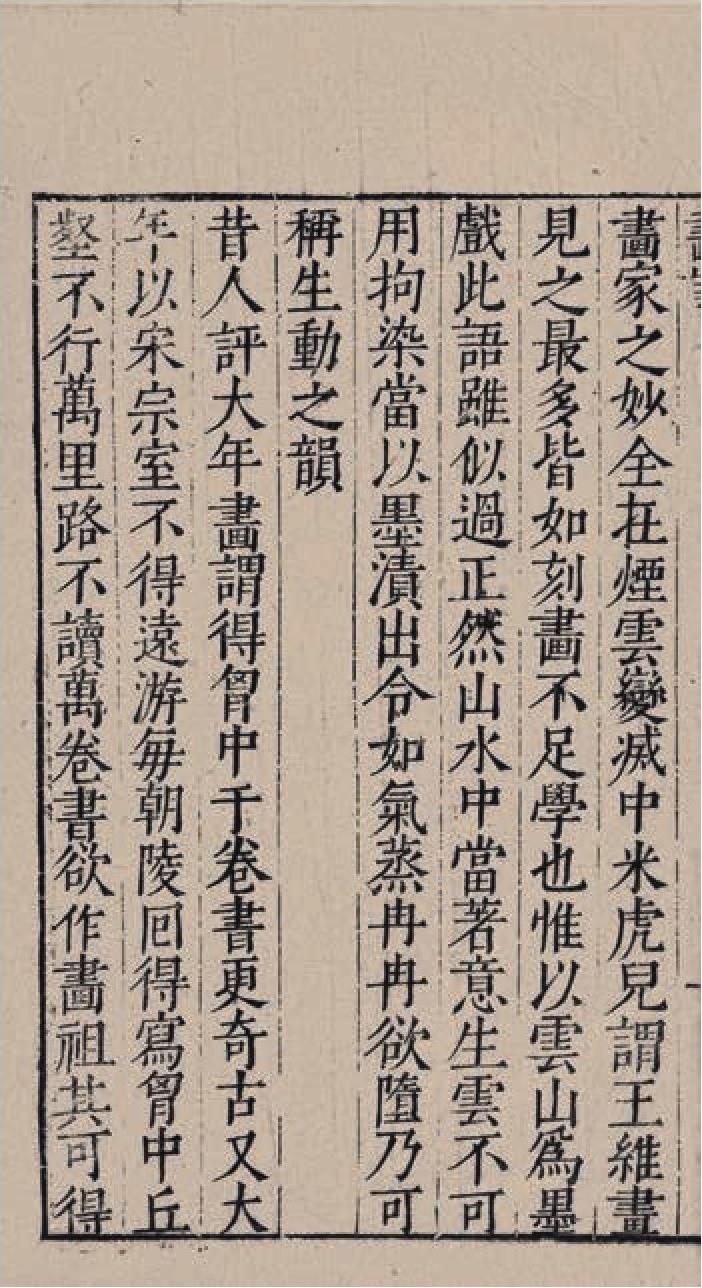 畫家之妙全在煙雲變滅中米虎兒謂王維畫
見之最多皆如刻畫不足學也惟以雲山爲墨
戲此語雖似過正然山水中當著意生雲不可
用拘染當以墨漬出令如氣蒸冉冉欲墮乃可
稱生動之韻
昔人評大年畫謂得胷中千卷書更奇古又大
年以宋宗室不得遠游每朝陵囘得寫胷中丘
壑不行萬里路不讀萬卷書欲作畫祖其可得